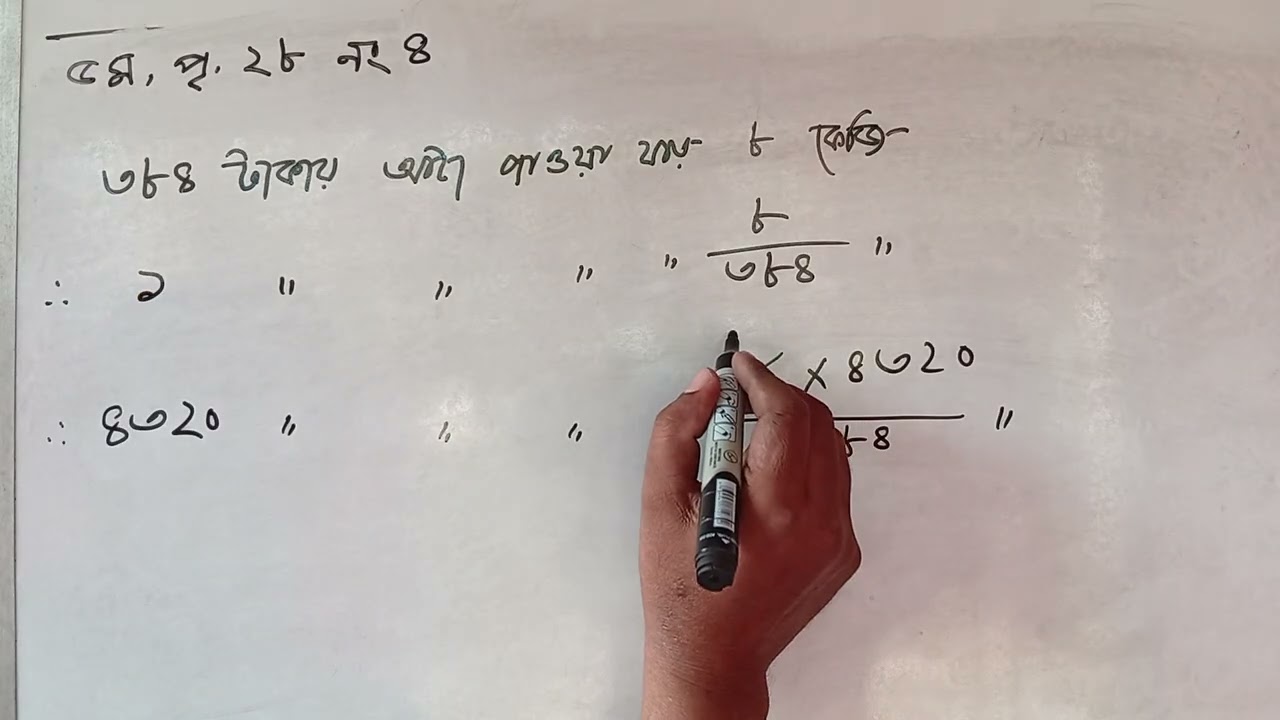 ৫ম, পৃ. ২৮ নং ৪
৩৮৪ টাকায় আটা পাওয়া যায় ৮ কেজি
∴ ১ " " " " ৮/৩৮৪ "
∴ ৪৩২০ " " " × ৪৩২০ / ৮৪ "